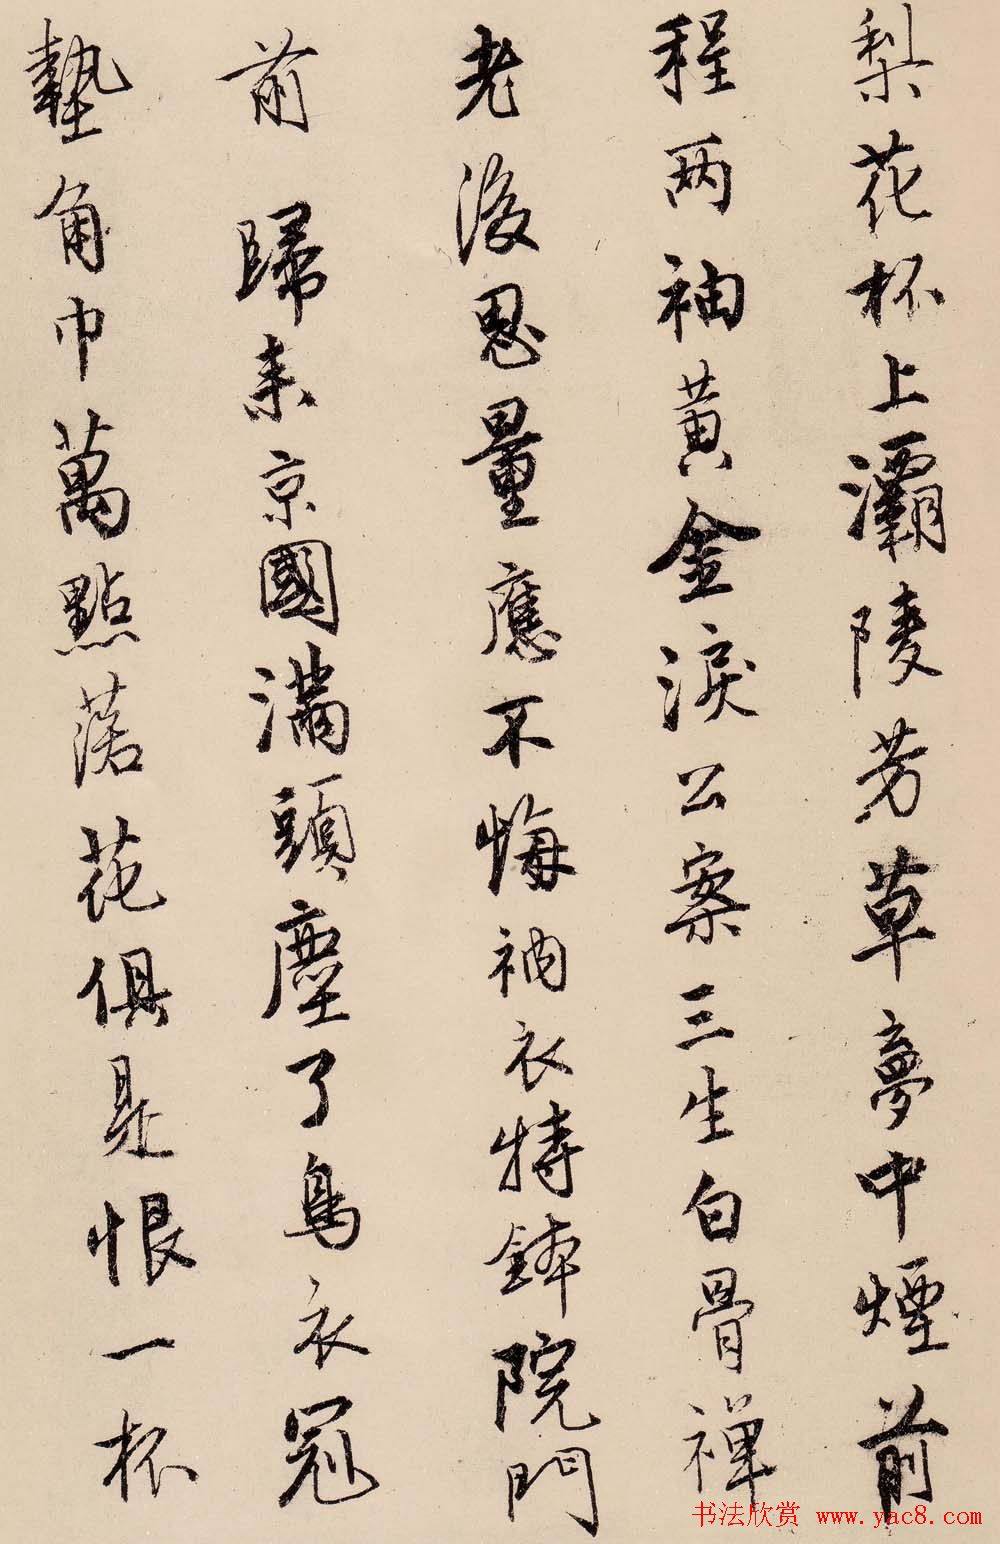 梨花杯上灞陵芳草夢中煙前
程两袖黃金淚公案三生白骨禅
老後思量應不悔衲衣持鉢院門
前 歸来京國滿頭塵了烏衣冠
墊角巾萬點落花俱是恨一杯
书法欣赏 www.yac8.com